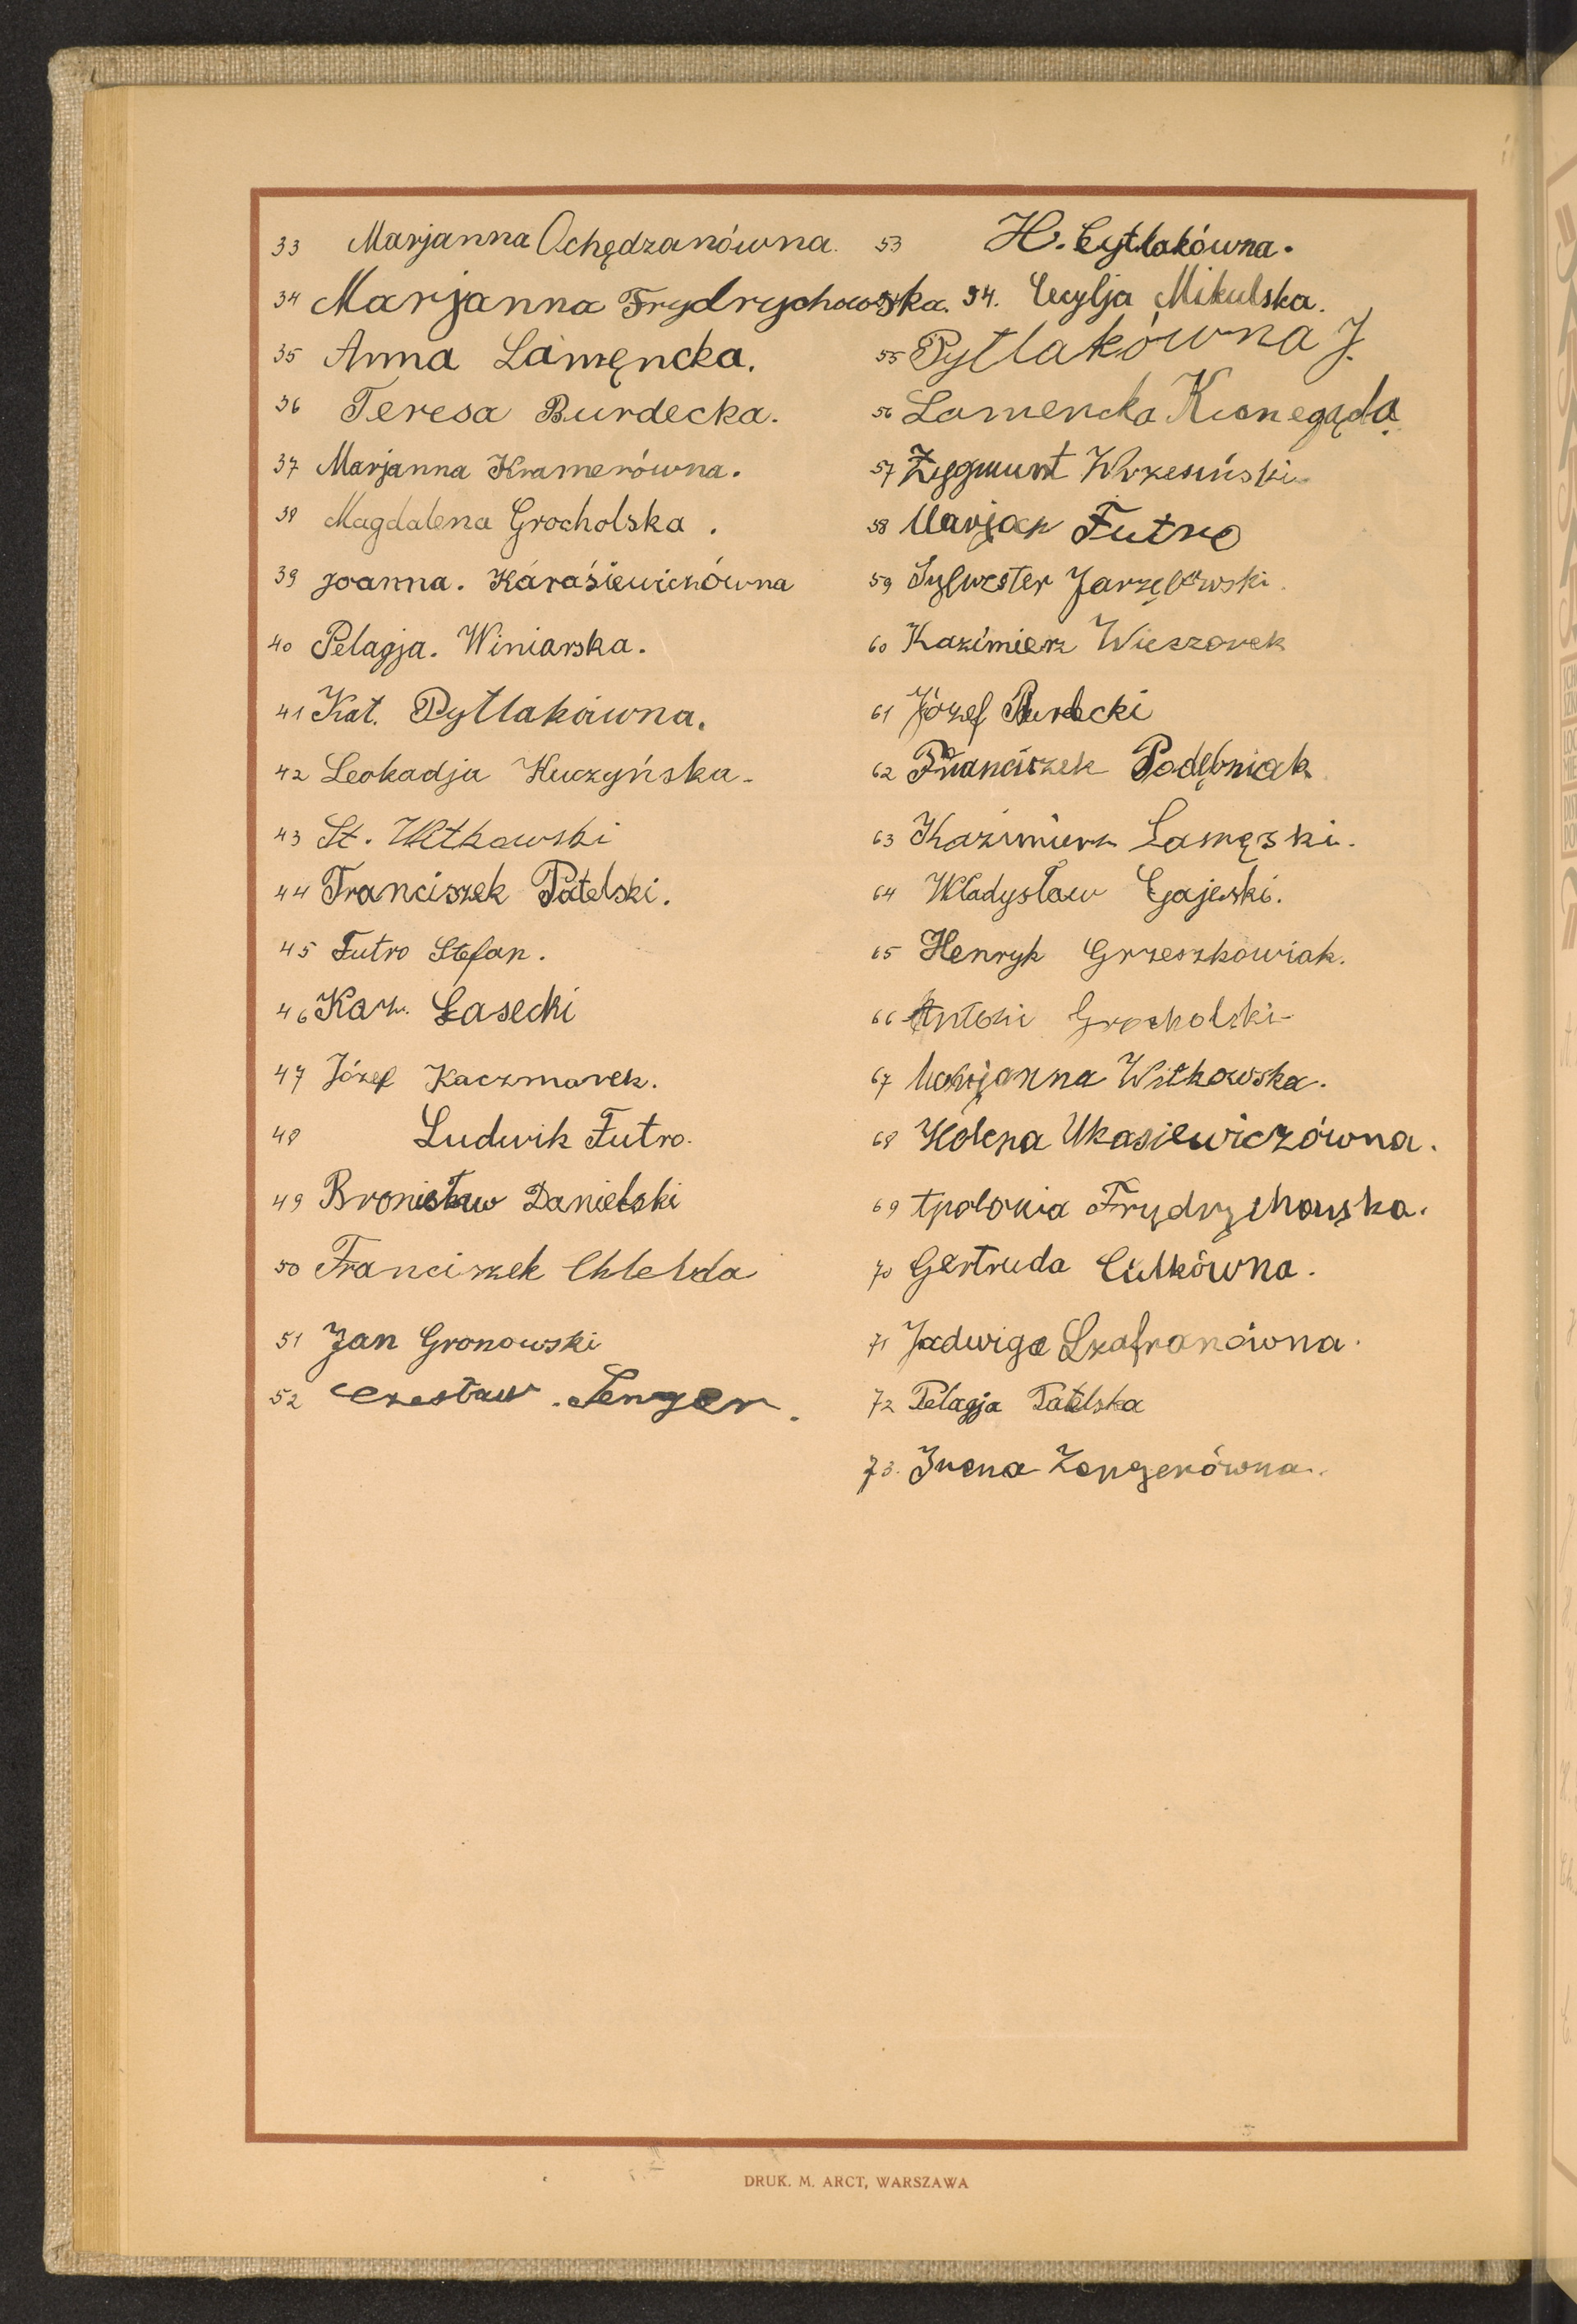 33 Marjanna Ochędzanówna.
34 Marjanna Frydrychowska.
35 Anna Lamęncka.
36 Teresa Burdecka.
37 Marjanna Kramerówna.
38 Magdalena Grocholska.
39 Joanna. Karasiewiczówna
40 Pelagja. Winiarska.
41 Kat. Pytlakówna.
42 Leokadja Huczyńska.
43 St. Witkowski
44 Franciszek Patelski.
45 Futro Stefan.
46 Kaz. Łasecki
47 Józef Kaczmarek.
48 Ludwik Futro.
49 Bronisław Danielski
50 Franciszek Chlebda
51 Jan Gronowski
52 Czesław. Senger.
53 H. Cytlakówna.
54. Cecylja Mikulska.
55 Pytlakówna J.
56 Lamencka Kunegąda
57 Zygmunt Wrzesiński
58 Marjan Futro
59 Sylwester Jarzębowski.
60 Kazimierz Wieszorek
61 Józef Burdecki
62 Franciszek Podębniak
63 Kazimierz Lamęski.
64 Władysław Gajeski.
65 Henryk Grzeszkowiak.
66 Antoni Grocholski
67 Marjanna Witkowska.
68 Helena Ukasiewiczówna.
69 Apolonia Frydrychowska.
70 Gertruda Culkówna.
71 Jadwiga Szafranówna.
72 Pelagja Patelska
73. Irena Zengerówna.
DRUK. M. ARCT, WARSZAWA